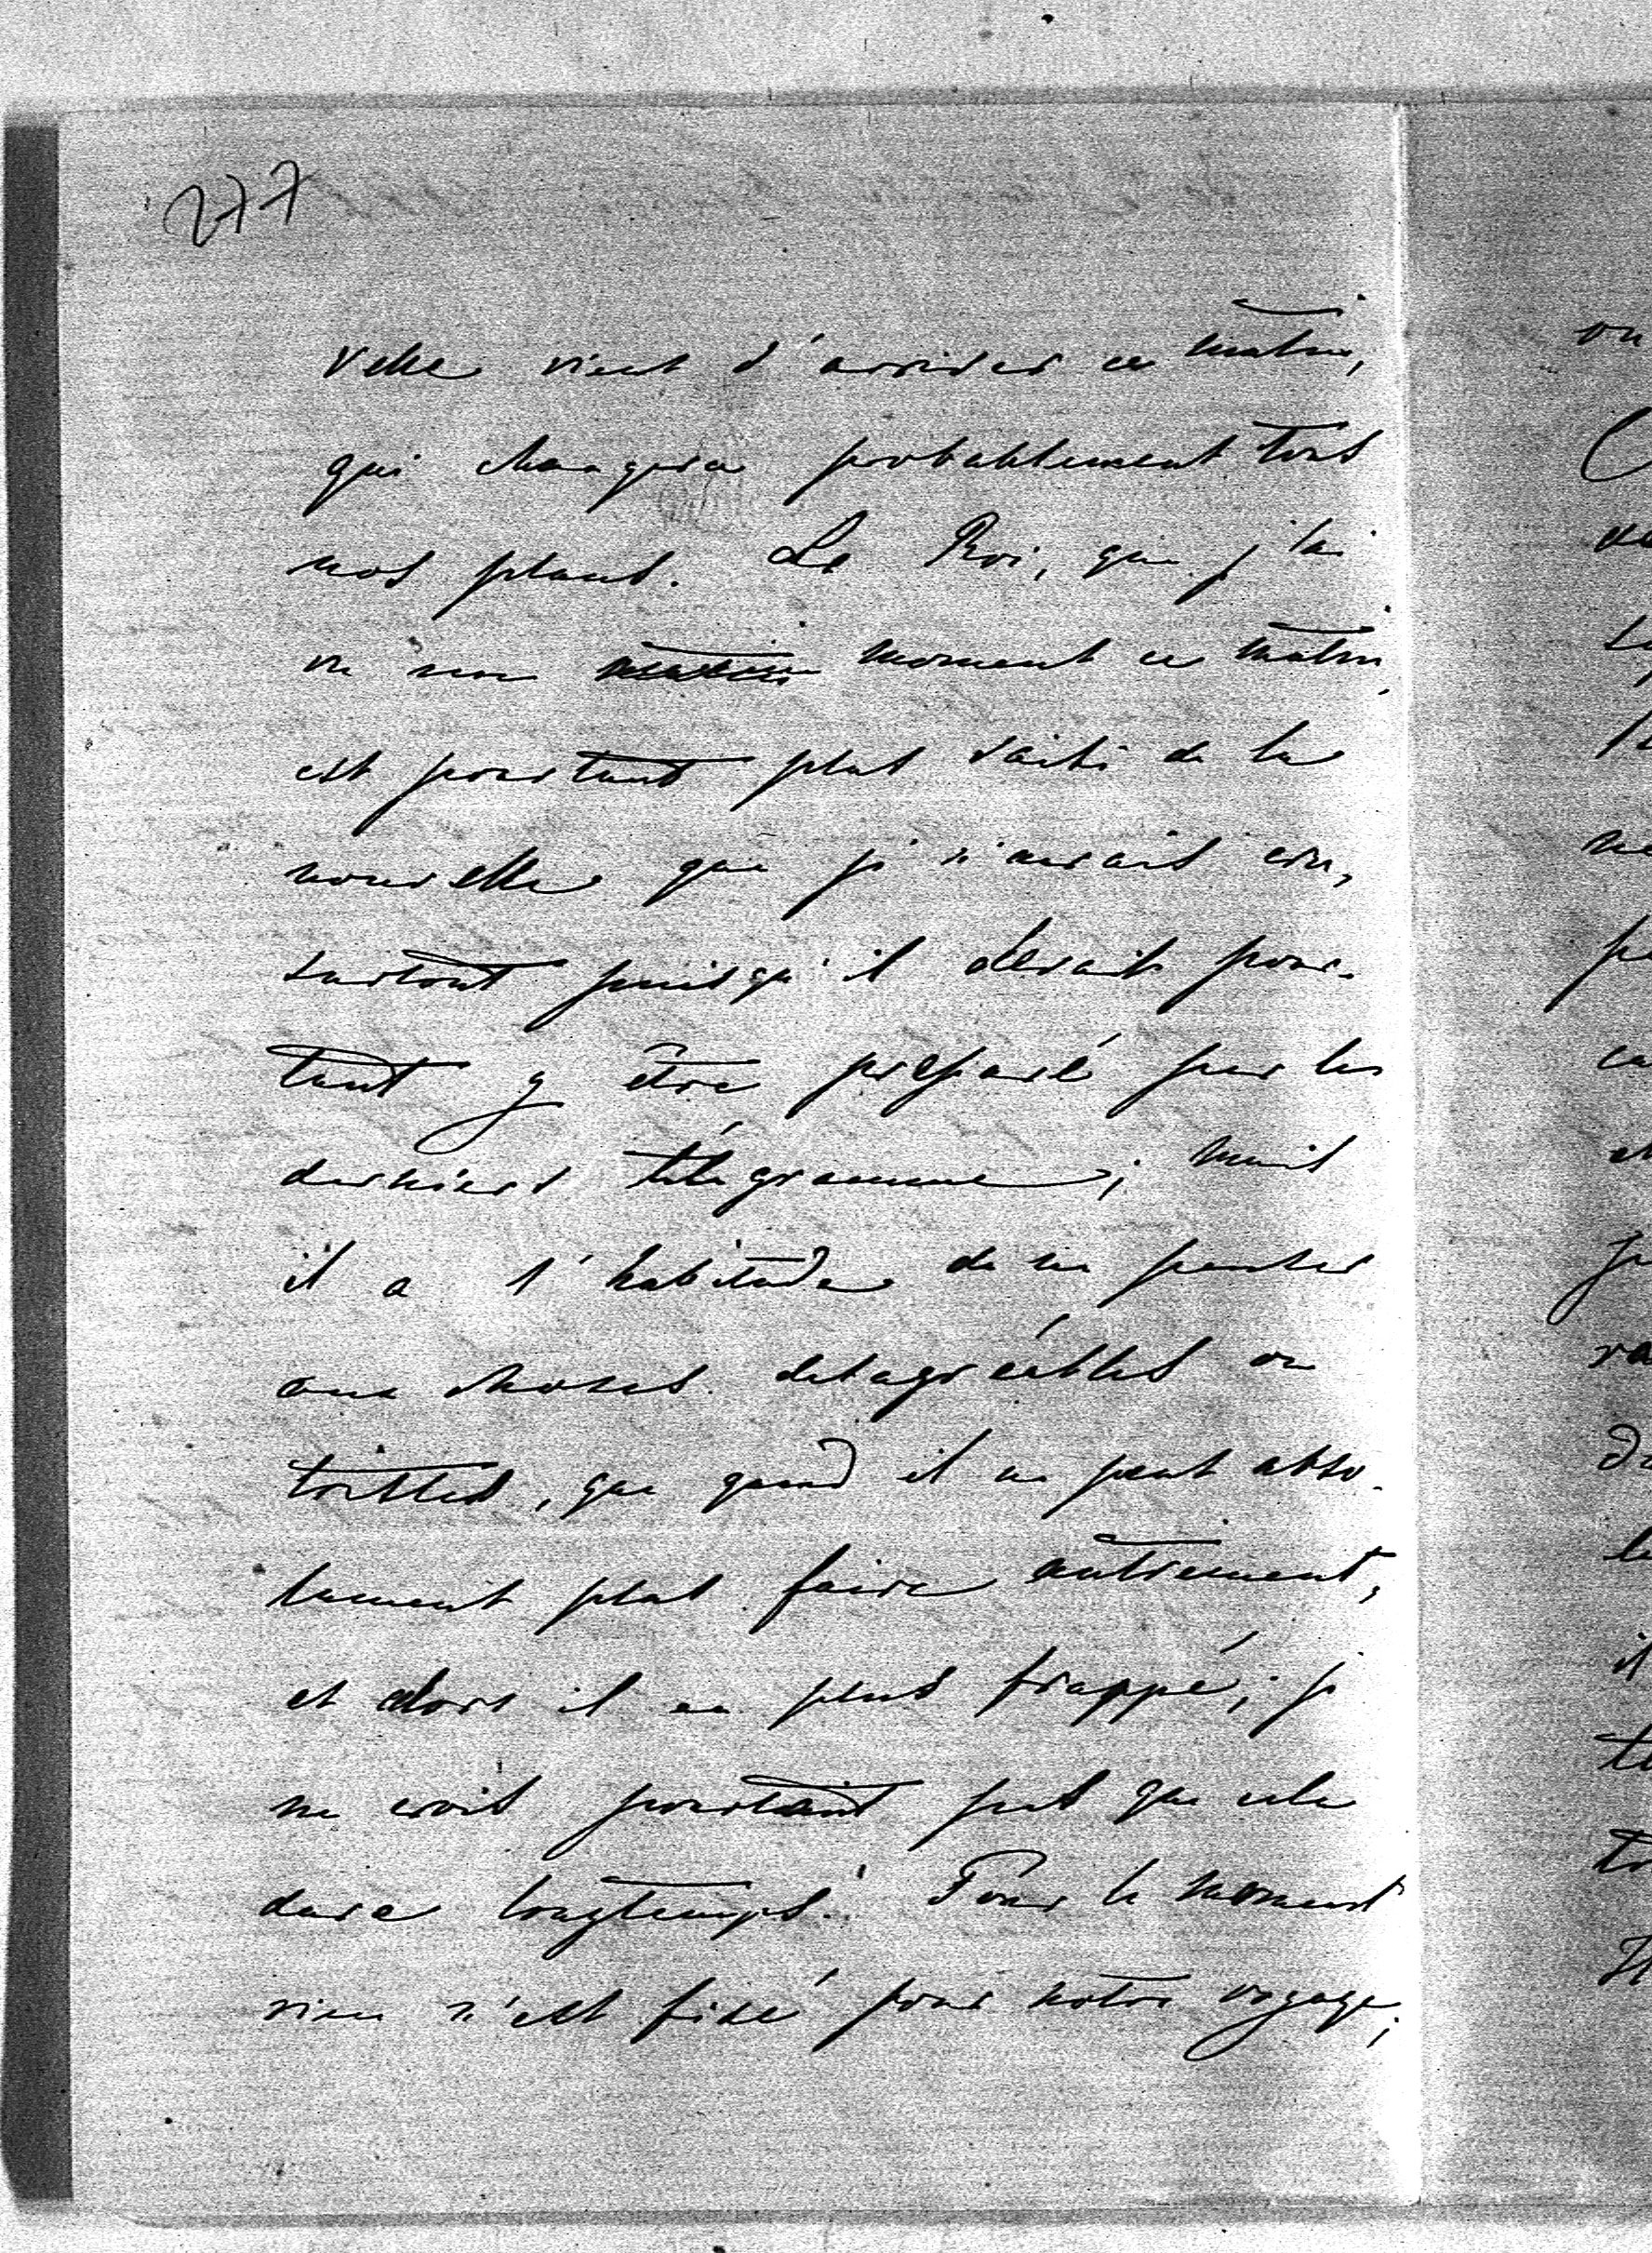 277
velle vient d'arriver ce matin,
qui changera probablement tous
nos plans. Le Roi, que j'ai
vu un moment ce matin,
est pourtant plus saisi de la
nouvelle que je n'aurais cru,
surtout puisqu'il devait pour-
tant y être préparé par les
derniers télégramme; mais
il a l'habitude de ne penser
aux choses desagréables ou
tristes, que quand il ne peut abso-
lument plus faire autrement,
et alors il en plus frappé; je
ne crois pourtant pas que cela
dure longtemps. Pour le moment
rien n'est fixé pour notre voyage;